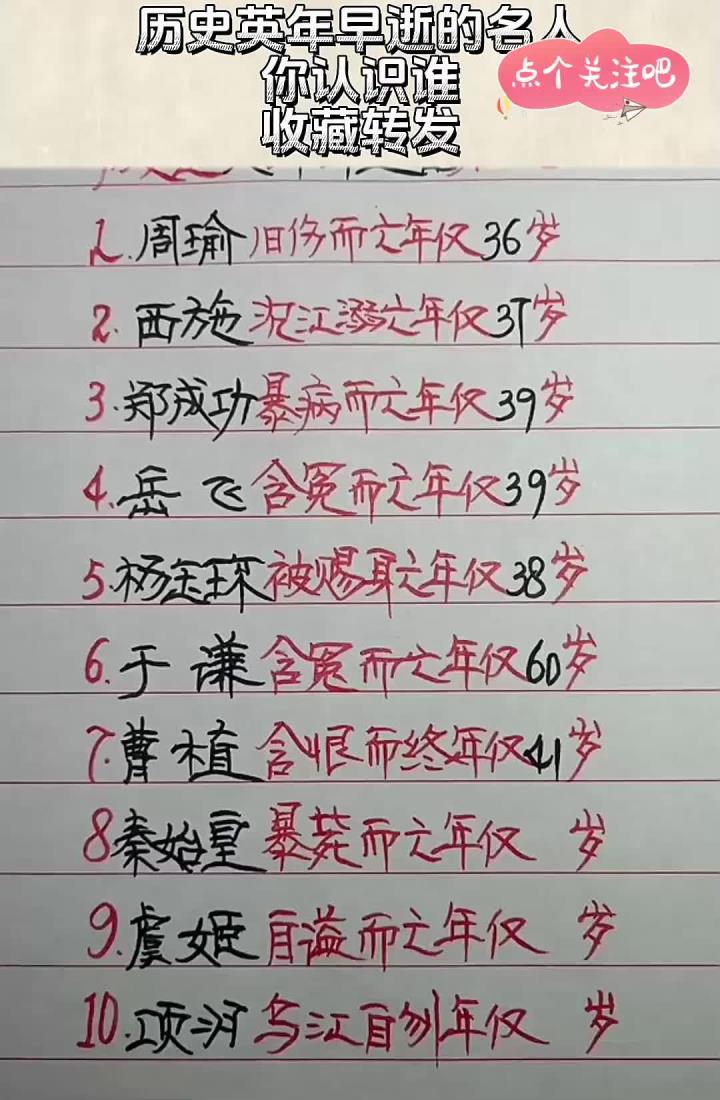 历史英年早逝的名人
你认识谁
收藏转发
点个关注吧
1.周瑜旧伤而亡年仅36岁
2.西施沉江溺亡年仅37岁
3.郑成功暴病而亡年仅39岁
4.岳飞含冤而亡年仅39岁
5.杨玉环被赐死亡年仅38岁
6.于谦含冤而亡年仅60岁
7.曹植含恨而终年仅41岁
8秦始皇暴毙而亡年仅 岁
9.虞姬自谥而亡年仅 岁
10.项河乌江自刎年仅 岁